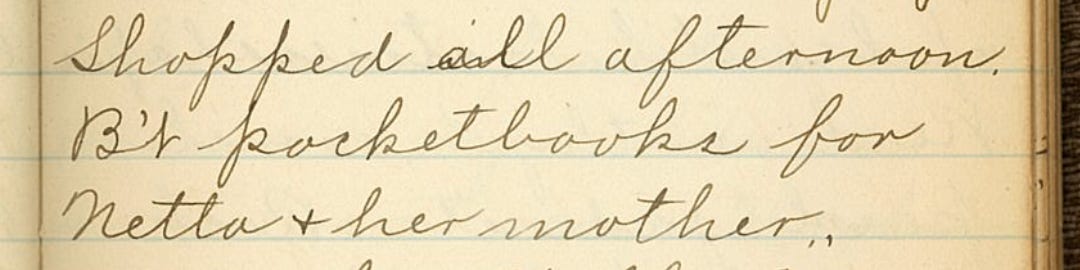 Shopped all afternoon.
B't pocketbooks for
Netta + her mother.